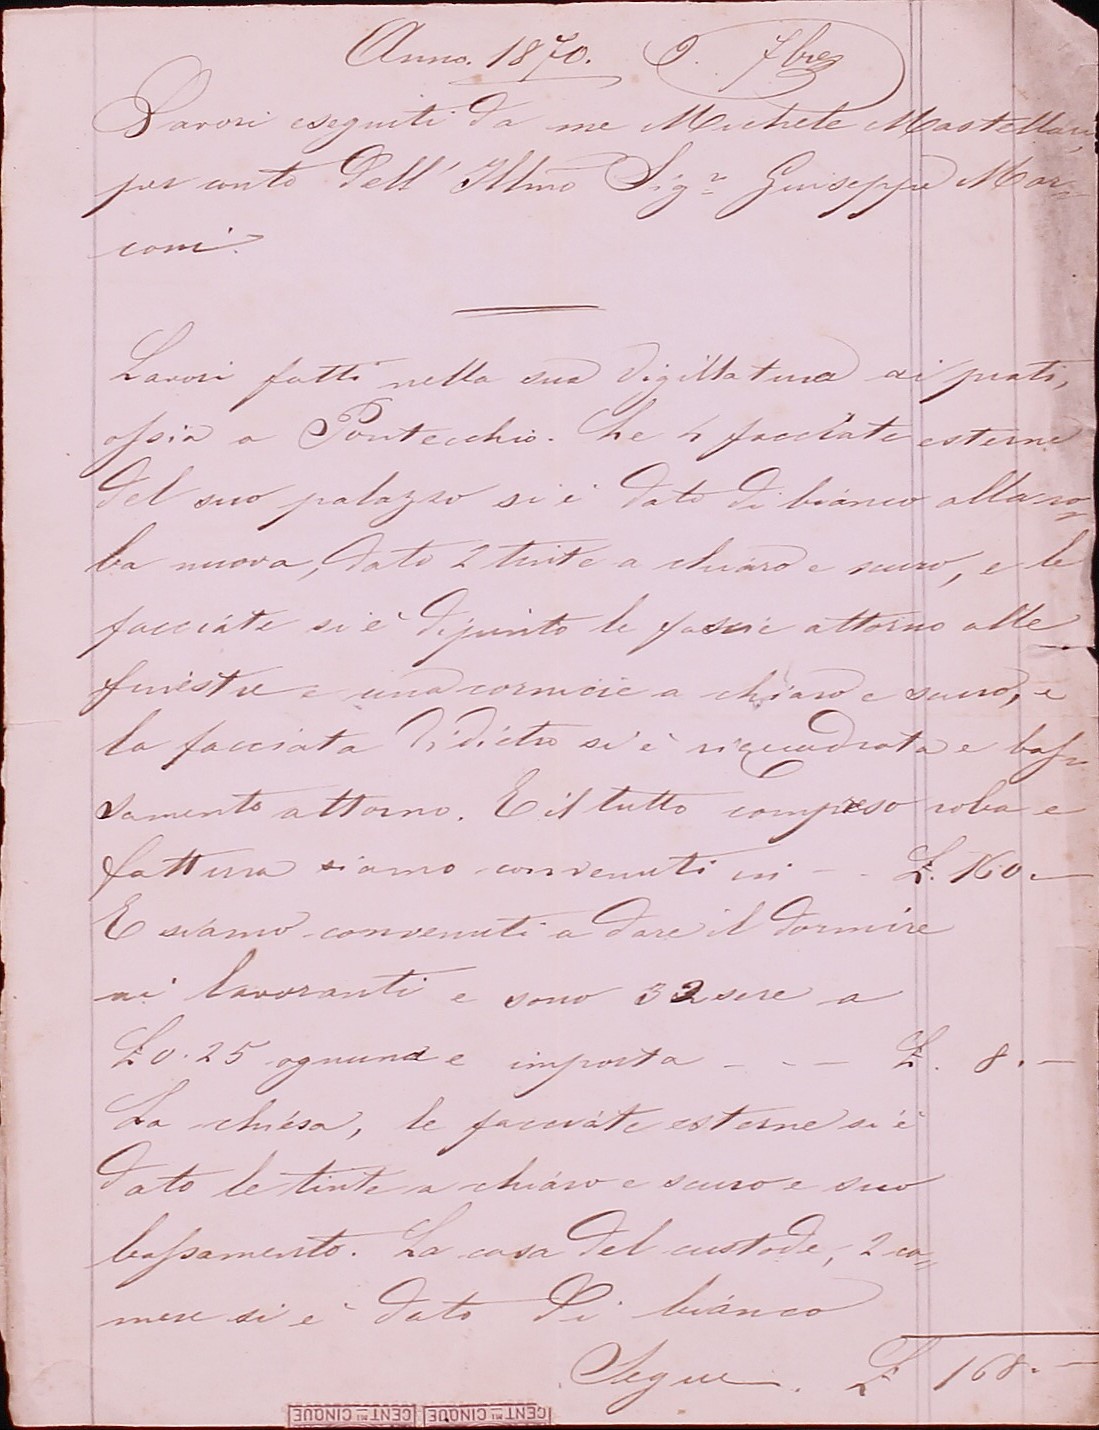 Anno. 1870. 9. 7bre
Lavori eseguiti da me Michele Mastellari,
per conto dell' Illmo Sigr. Giuseppe Mar=
coni.
Lavori fatti nella sua Vigillatura ai prati,
ossia a Pontecchio. Le 4 facciate esterne
del suo palazzo si è dato di bianco alla ro=
ba nuova, dato 2 tinte a chiaro e scuro, e le
facciate si è dipinto le fascie attorno alle
finestre e una cornicie a chiaro e scuro, e
la facciata didietro si è riquadrata e bas=
samento attorno. E il tutto compreso roba e
fattura siamo convenuti in - - £. 160. -
E siamo convenuti a dare il dormire
ai lavoranti e sono 32 sere a
£ 0. 25 ognuna e importa - - - £. 8. -
La chiesa, le facciate esterne si è
dato le tinte a chiaro e scuro e suo
bassamento. La casa del custode, 2 ca=
mere si è dato di bianco
Segue. £ 168. -
CENT.MI CINQUE CENT.MI CINQUE